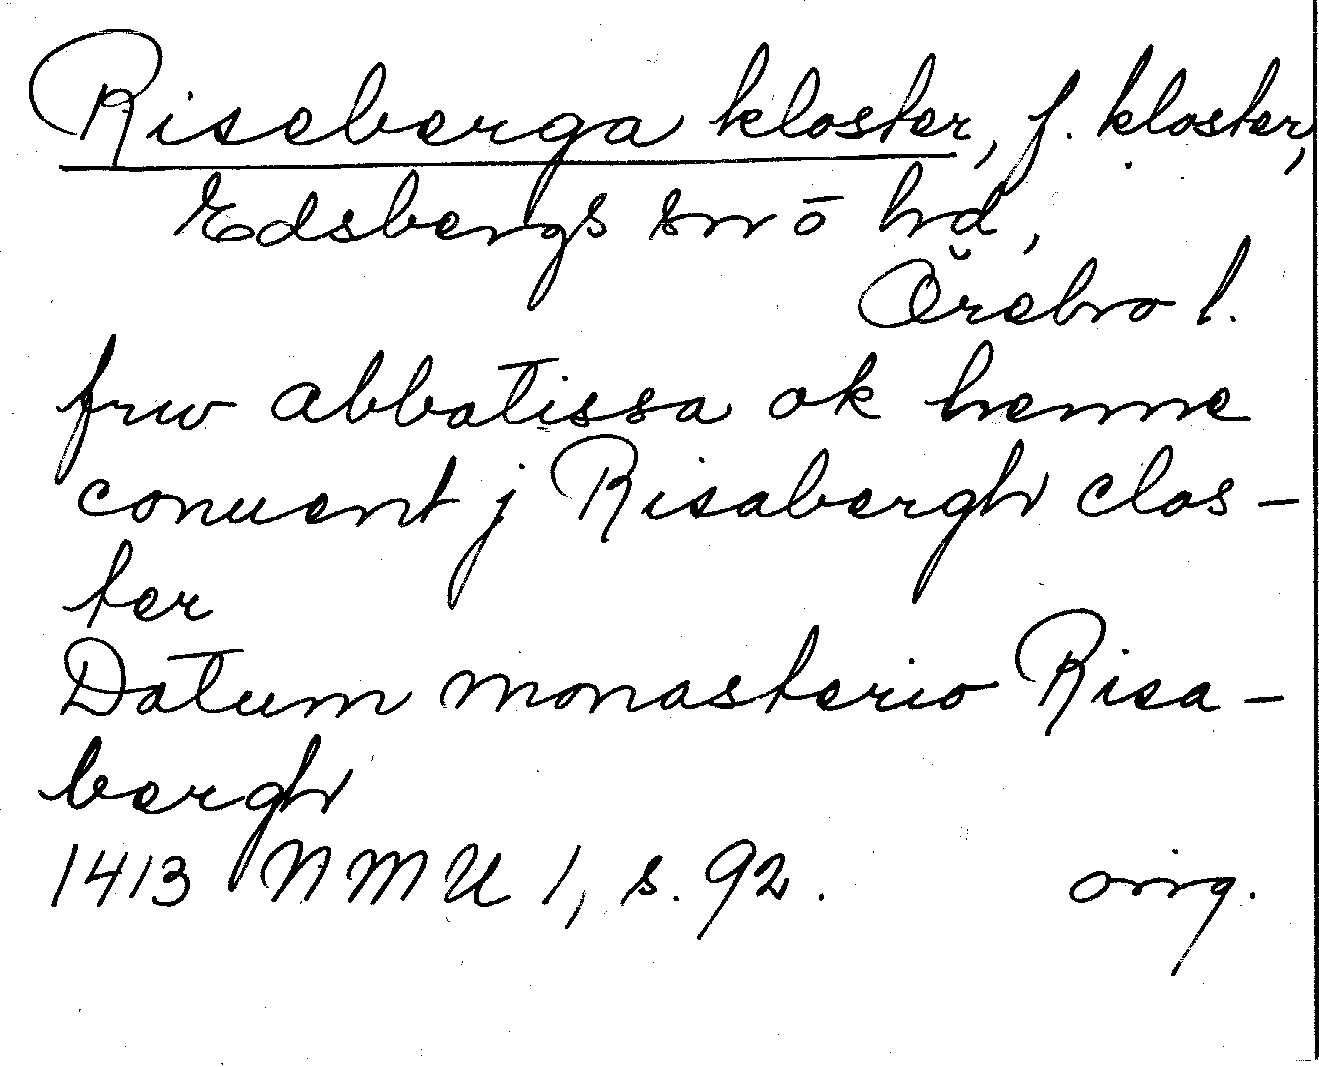 Riseberga kloster, f. kloster,
Edsbergs sn o hd,
Örebro l.
frw abbatissa ok henne
conuent j Risabergh clos-
ter
Datum monasterio Risa-
bergh
1413 NMU 1, s. 92. orig.